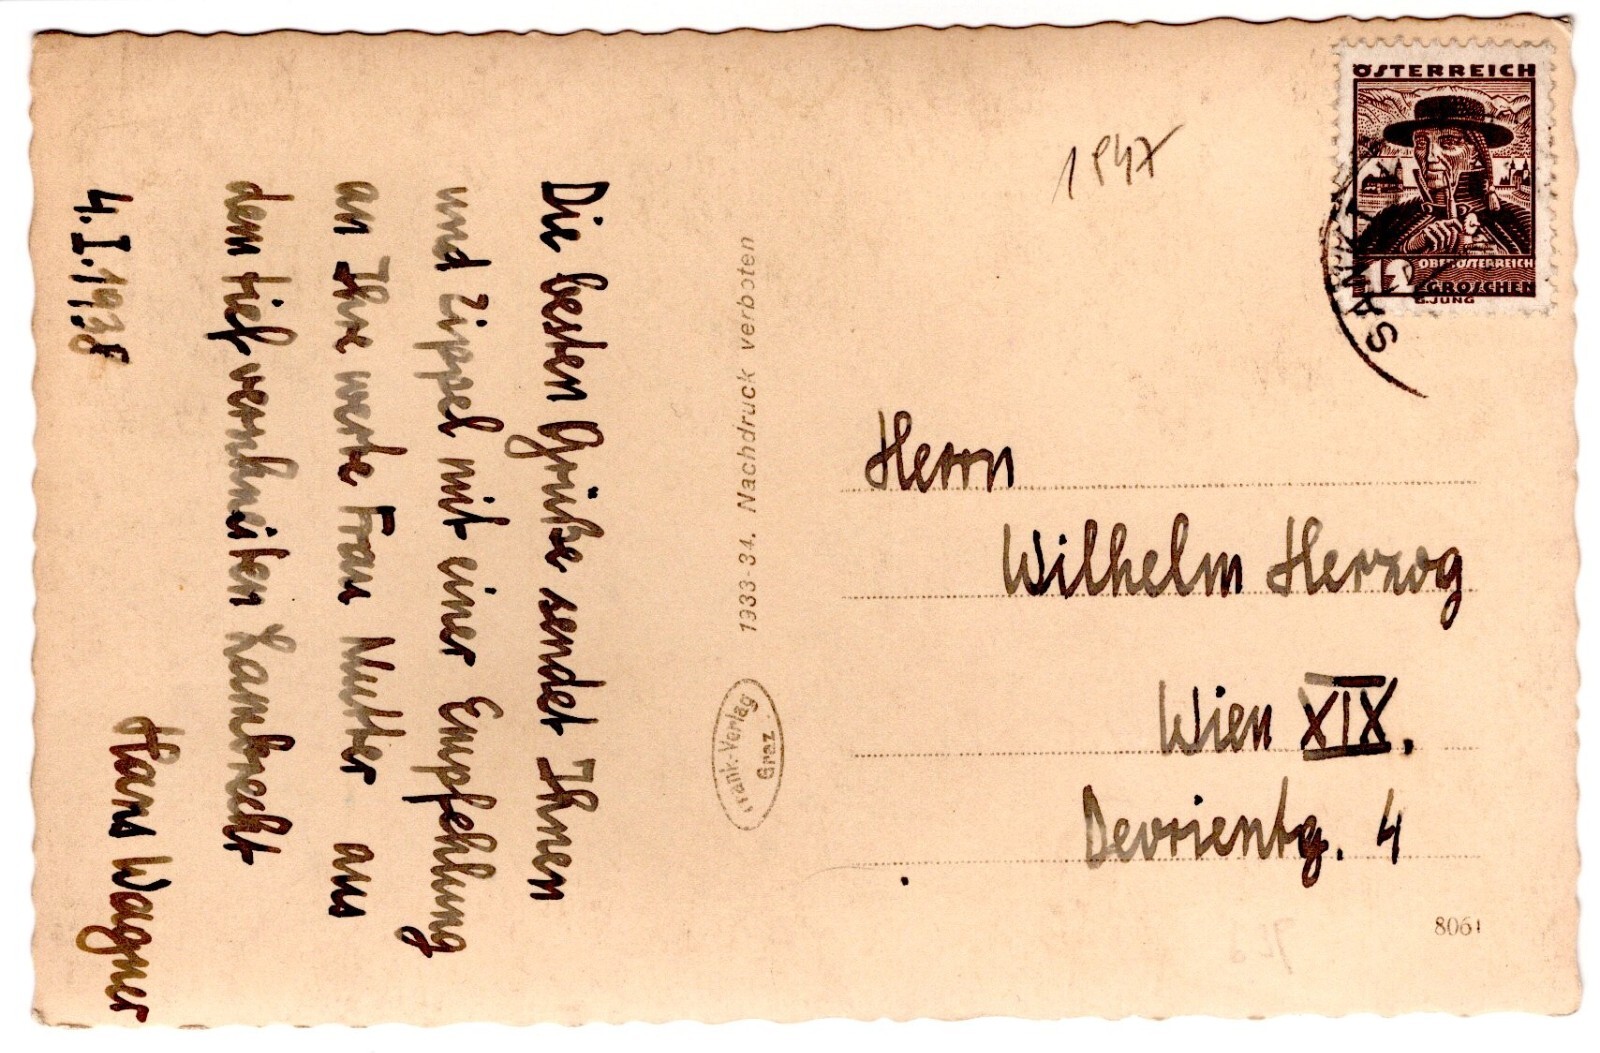 Die besten Grüße sendet Ihnen
und Zippel mit einer Empfehlung
an Ihre werte Frau Mutter aus
dem tief verschneiten Lambrecht
4.I.1938
Hans Wagner
1933-34. Nachdruck verboten
Frank-Verlag
Graz
1847
ÖSTERREICH
OBERÖSTERREICH
12 GROSCHEN
G.JUNG
SANKT
Herrn
Wilhelm Herzog
Wien XIX.
Devrientg. 4
8061